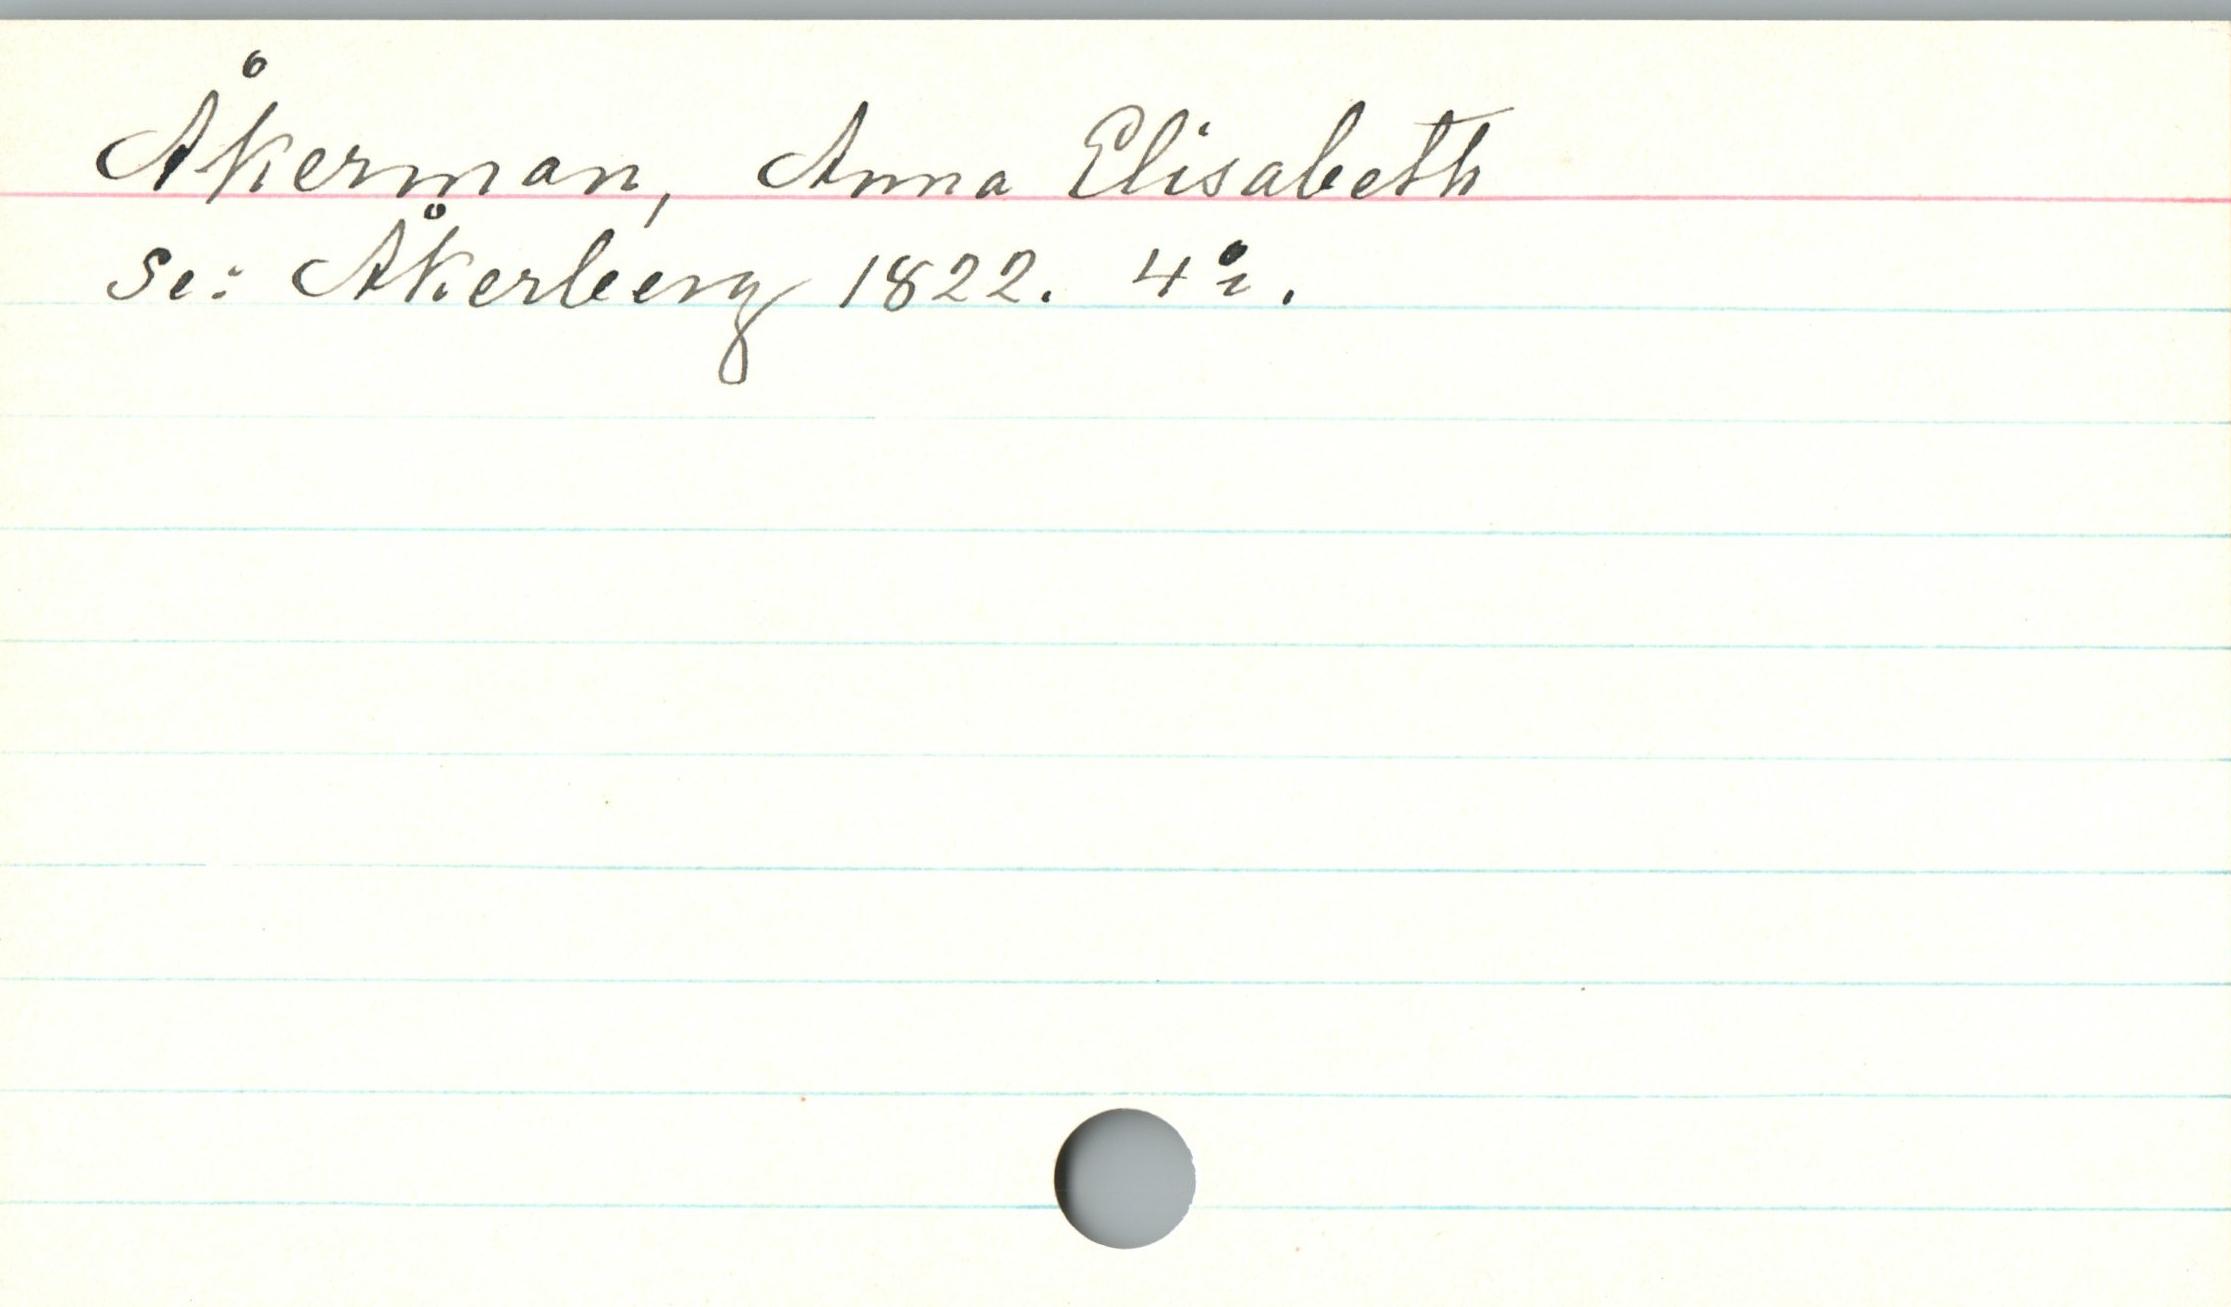 Åkerman, Anna Elisabeth
se: Åkerberg 1822. 4:o